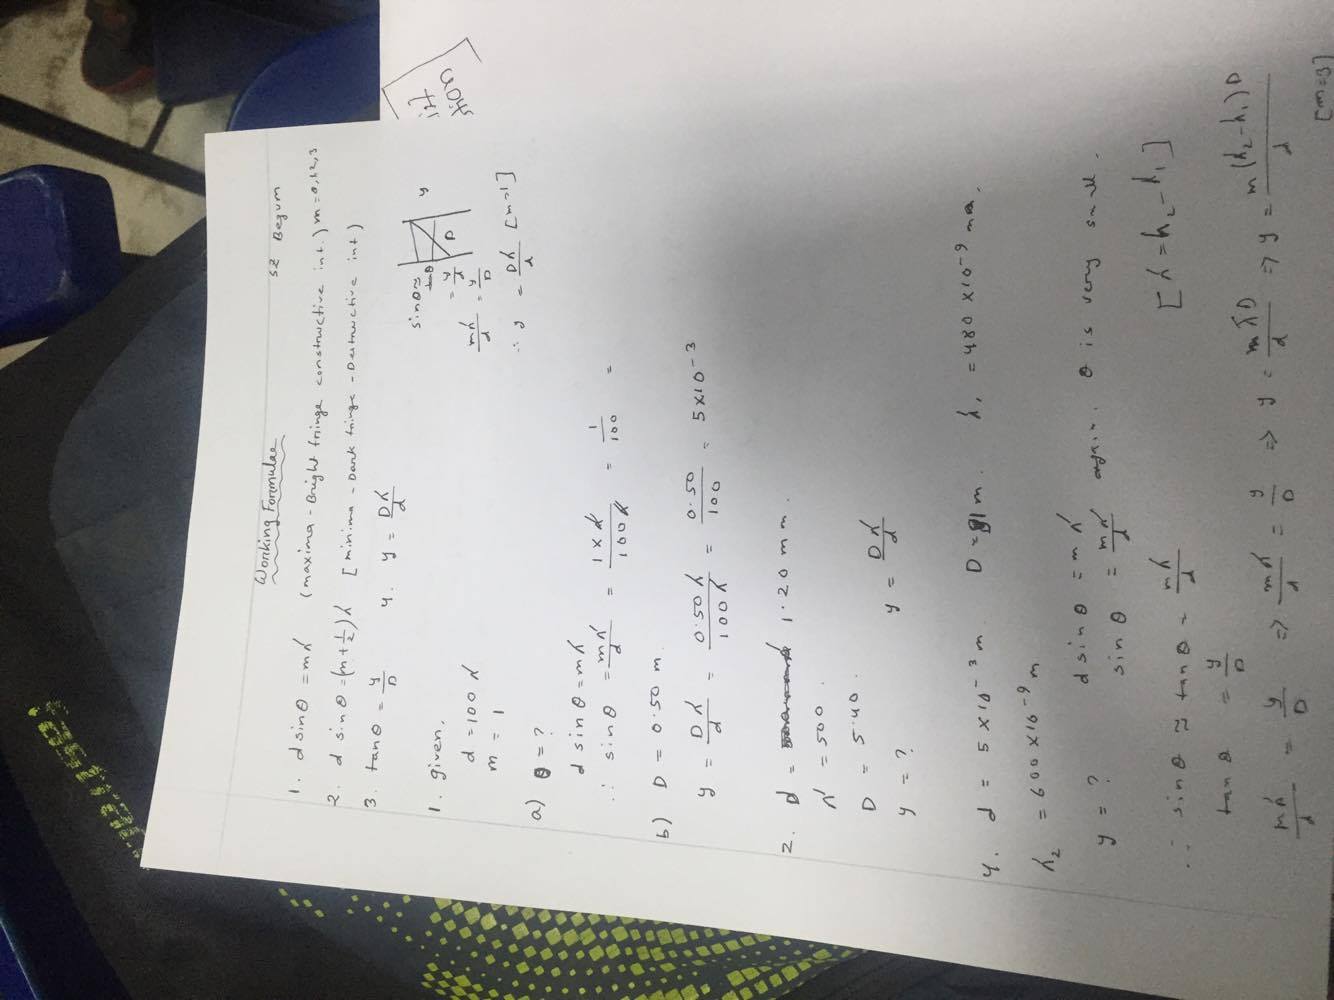 Working Formulae
SZ Begum
1. d sin θ = mλ (maxima - Bright fringe constructive int.) m = 0,1,2,3
2. d sin θ = (m + 1/2) λ [minima - Dark fringe - Destructive int)
3. tan θ = y/D 4. y = Dλ/d
sin θ ≈ tan θ
= y/d
mλ/d = y/D
∴ y = Dλ/d [m=1]
y
D
1. given,
d = 100 λ
m = 1
a) θ = ?
d sin θ = mλ
∴ sin θ = mλ/d = 1 × λ/100λ = 1/100 =
b) D = 0.50 m.
y = Dλ/d = 0.50 λ/100 λ = 0.50/100 = 5×10⁻³
2. d = 1.20 mm.
λ = 500.
D = 5.40.
y = ? y = Dλ/d
4. d = 5 × 10⁻³ m. D = 1 m. λ₁ = 480 × 10⁻⁹ m.
λ₂ = 600 × 10⁻⁹ m
y = ? d sin θ = mλ
sin θ = mλ/d again. θ is very small.
∴ sin θ ≈ tan θ = mλ/d [λ = λ₂ - λ₁]
tan θ = y/D
mλ/d = y/D ⇒ mλ/d = y/D ⇒ y = mλD/d ⇒ y = m(λ₂ - λ₁)D/d
[m=3]